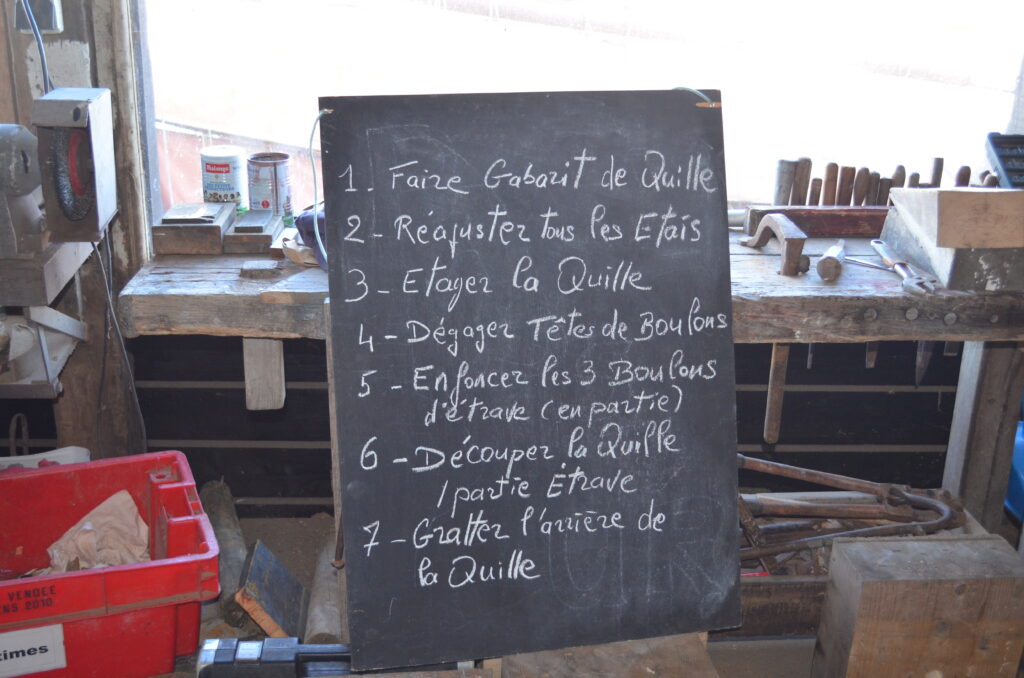 1 - Faire Gabarit de Quille
2 - Réajuster tous les Etais
3 - Etager la Quille
4 - Dégager Têtes de Boulons
5 - Enfoncer les 3 Boulons
d'étrave (en partie)
6 - Découper la Quille
/partie Étrave
7 - Gratter l'arrière de
la Quille
VENDEE
NS 2010
times